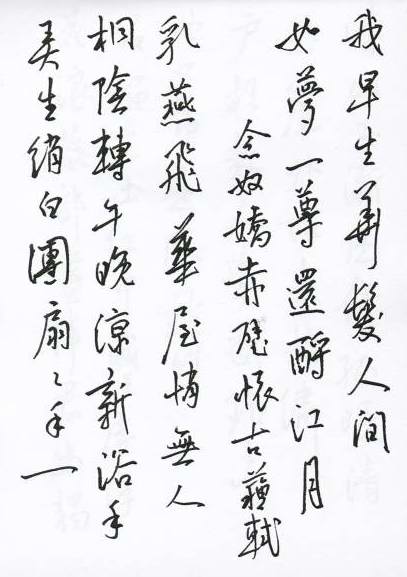 我早生華髮人間
如夢一尊還酹江月
念奴嬌赤壁懷古蘇軾
乳燕飛華屋悄無人
桐陰轉午晚涼新浴手
弄生綃白團扇〻手一